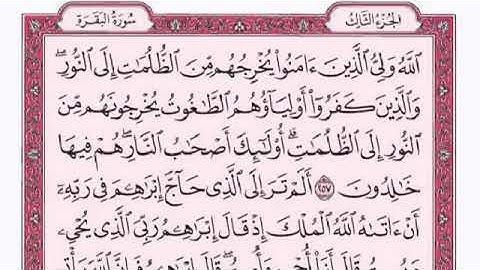 الجزء الثالث
سورة البقرة
ٱللَّهُ وَلِىُّ ٱلَّذِينَ ءَامَنُوا۟ يُخْرِجُهُم مِّنَ ٱلظُّلُمَـٰتِ إِلَى ٱلنُّورِ ۖ
وَٱلَّذِينَ كَفَرُوٓا۟ أَوْلِيَآؤُهُمُ ٱلطَّـٰغُوتُ يُخْرِجُونَهُم مِّنَ
ٱلنُّورِ إِلَى ٱلظُّلُمَـٰتِ ۗ أُو۟لَـٰٓئِكَ أَصْحَـٰبُ ٱلنَّارِ ۖ هُمْ فِيهَا
خَـٰلِدُونَ ٢٥٧ أَلَمْ تَرَ إِلَى ٱلَّذِى حَآجَّ إِبْرَٰهِـۧمَ فِى رَبِّهِۦٓ
أَنْ ءَاتَىٰهُ ٱللَّهُ ٱلْمُلْكَ إِذْ قَالَ إِبْرَٰهِـۧمُ رَبِّىَ ٱلَّذِى يُحْىِۦ
قَالَ أَنَا۠ أُحْىِۦ